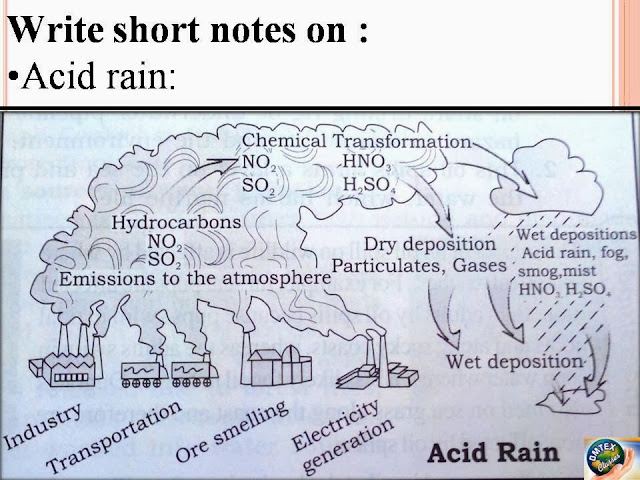 Write short notes on :
•Acid rain:
Chemical Transformation
NO₂ HNO₃
SO₂ H₂SO₄
Hydrocarbons
NO₂
SO₂
Emissions to the atmosphere
Dry deposition
Particulates, Gases
Wet depositions
Acid rain, fog,
smog,mist
HNO₃ H₂SO₄
Wet deposition
Industry
Transportation
Ore smelling
Electricity
generation
Acid Rain
DMTEX
Classes